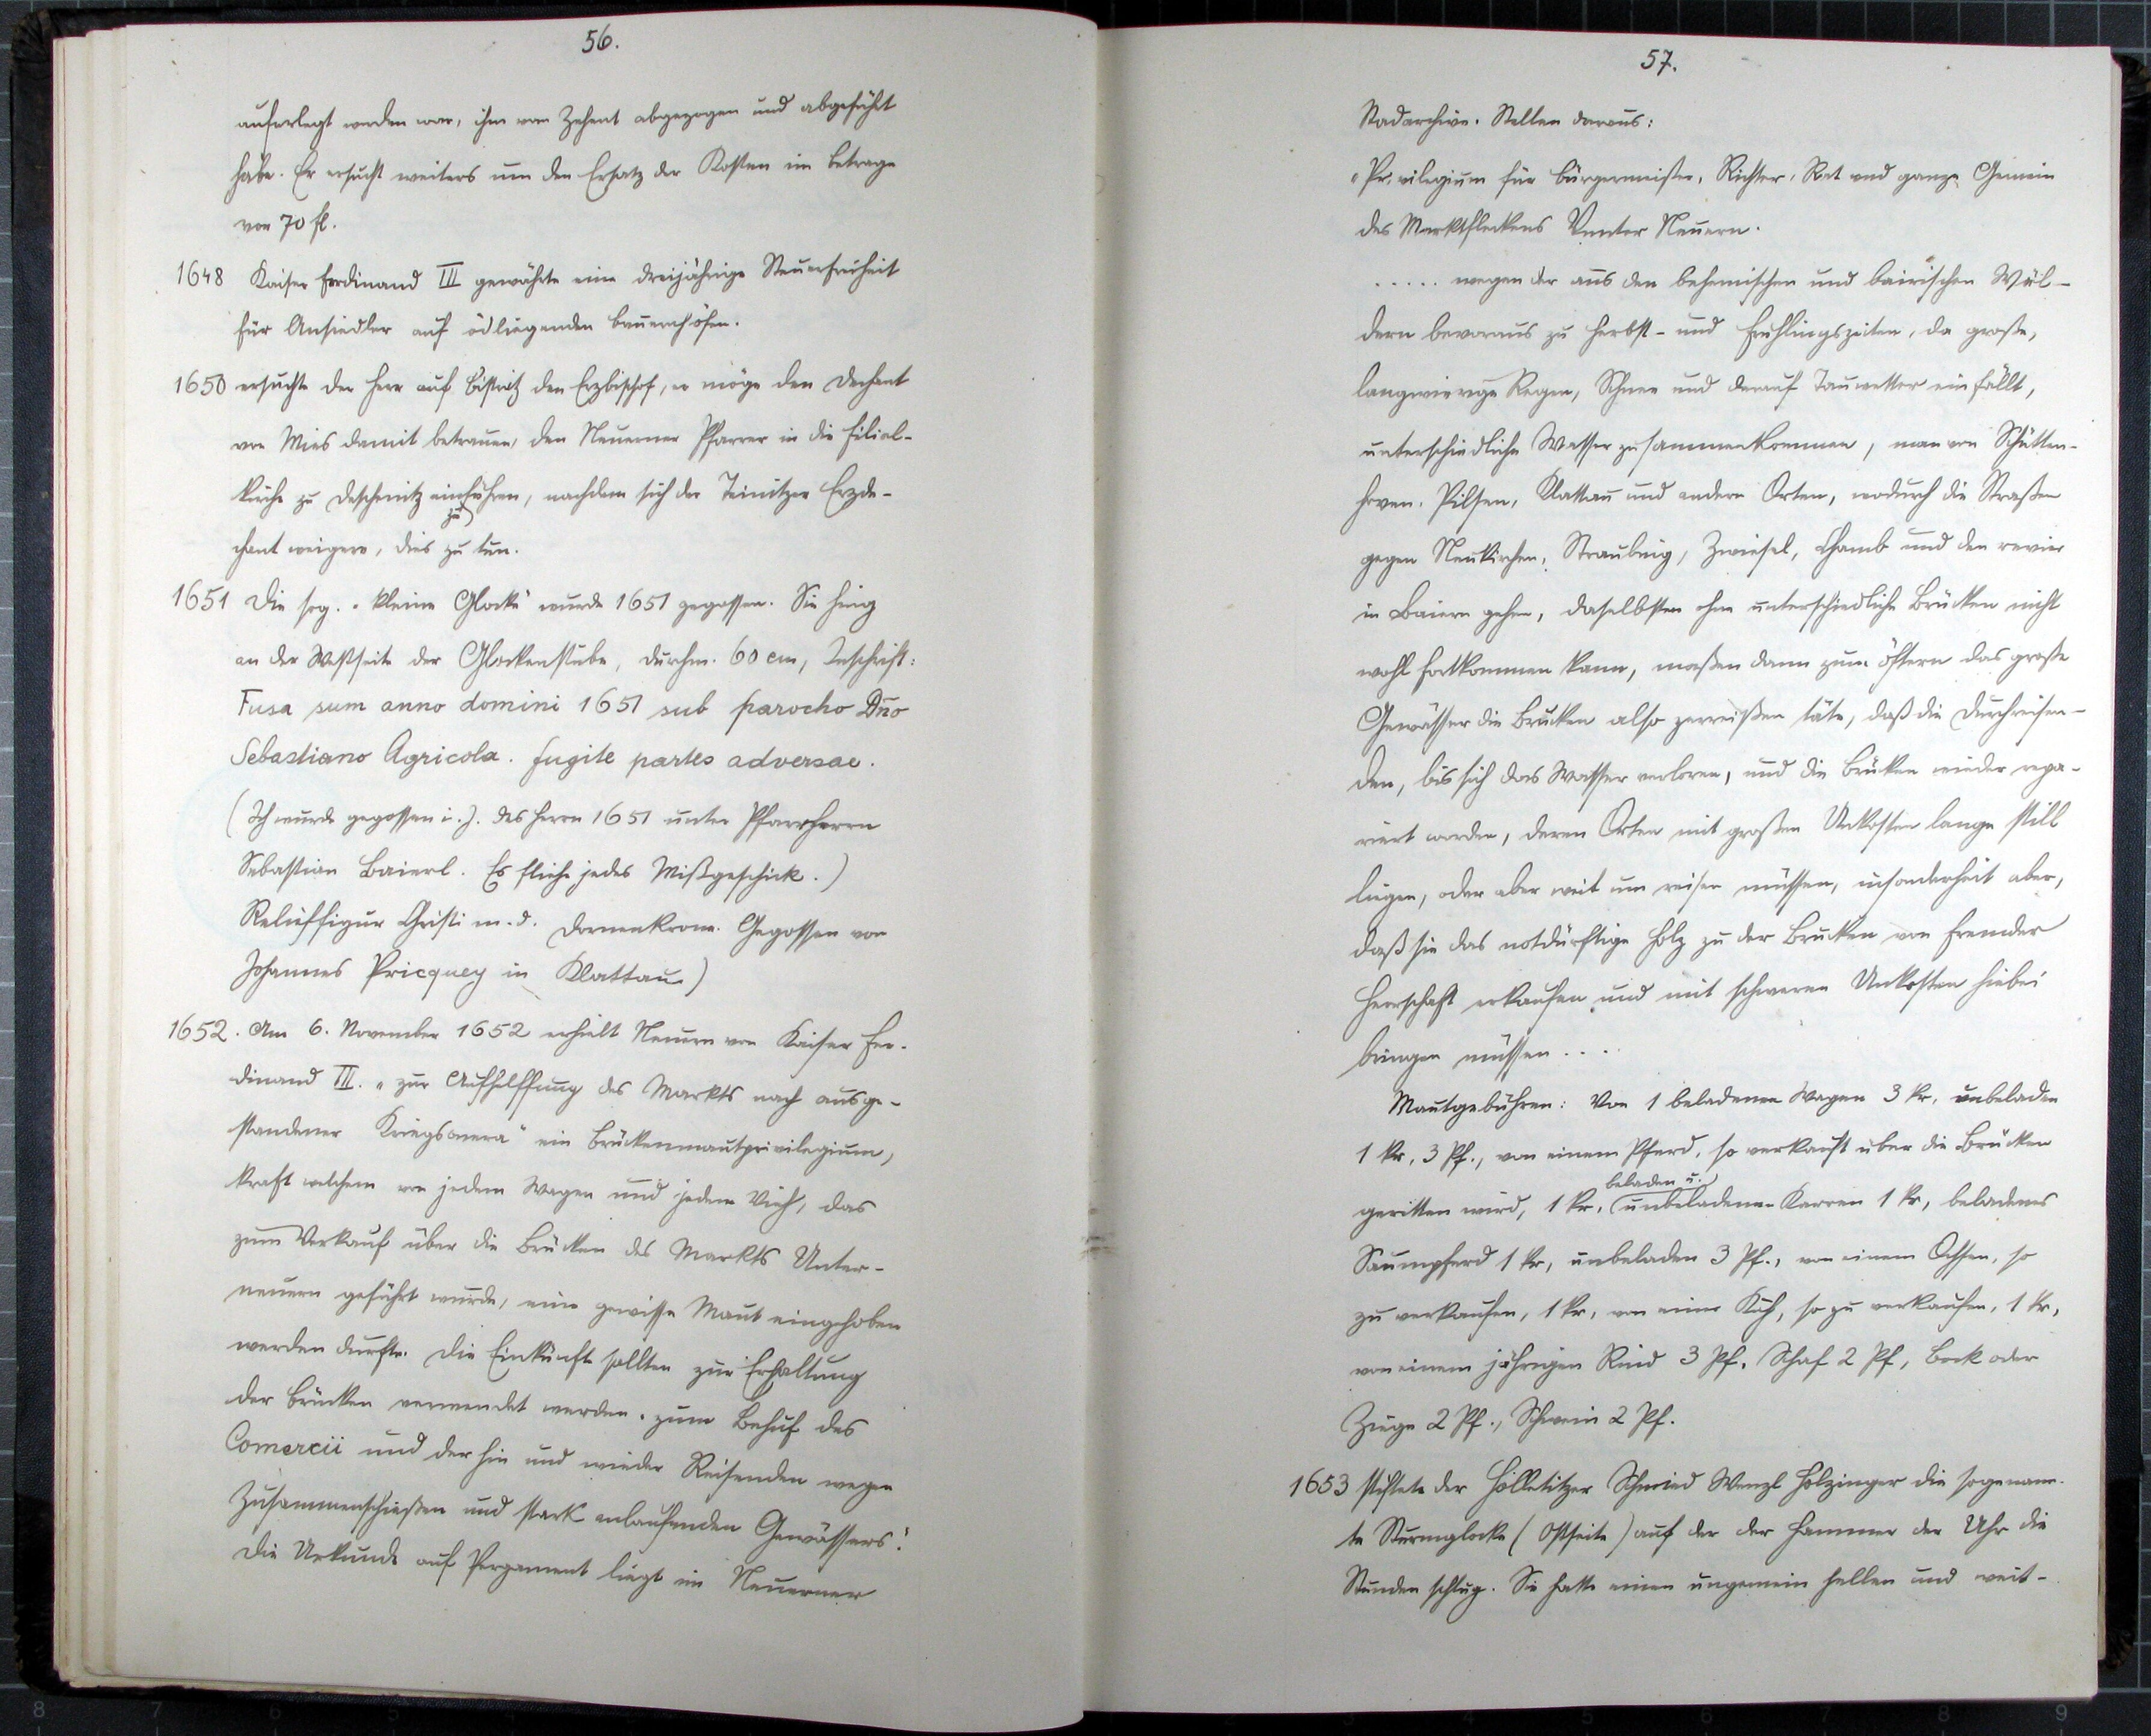 56.
auferlegt worden war, ihm vom Zehent abgezogen und abgeführt
habe. Er ersucht weiters um den Ersatz der Kosten im Betrage
von 70 fl.
1648 Kaiser Ferdinand III gewährte eine dreijährige Steuerfreiheit
für Ansiedler auf ödliegenden Bauernhöfen.
1650 ersuchte der Herr auf Bistritz den Erzbischof, er möge den Dechant
von Mies damit betrauen, den Neuerner Pfarrer in die Filial-
kirche zu Deschenitz einführen, nachdem sich der Teinitzer Erzde-
zu
chant weigere, dies zu tun.
1651 Die sog. „kleine Glocke" wurde 1651 gegossen. Sie hing
an der Westseite der Glockenstube, Durchm. 60 cm, Inschrift:
Fusa sum anno domini 1651 sub parocho Dño
Sebastiano Agricola. fugite partes adversae.
(Ich wurde gegossen i. J. des Herrn 1651 unter Pfarrherrn
Sebastian Baierl. Es fliehe jedes Mißgeschick.)
Relieffigur Christi m. d. Dornenkrone. Gegossen von
Johannes Pricquey in Klattau)
1652. Am 6. November 1652 erhielt Neuern von Kaiser Fer-
dinand III. „zur Aufhelffung des Markts nach ausge-
standener Kriegsonera" ein Brückenmautprivilegium,
kraft welchem von jedem Wagen und jedem Vieh, das
zum Verkauf über die Brücken des Markts Unter-
neuern geführt wurde, eine gewisse Maut eingehoben
werden durfte. Die Einkünfte sollten zur Erhaltung
der Brücken verwendet werden „zum Behuf des
Comercii und der hin und wieder Reisenden wegen
Zusammenschießen und stark anlaufenden Gewässers".
Die Urkunde auf Pergament liegt im Neuerner
57.
Stadarchive. Stellen daraus:
„Privilegium für Bürgermeister, Richter, Rat und ganze Gemein
des Marktfleckens Unter Neuern.
..... wegen der aus den behemischen und bairischen Wäl-
dern bevoraus zu Herbst- und Frühlingszeiten, da große,
langwierige Regen, Schnee und darauf Tauwetter einfällt,
unterschiedliche Wasser zusammenkommen, man von Schütten-
hoven, Pilsen, Klattau und andern Orten, wodurch die Straßen
gegen Neukirchen, Straubing, Zwiesel, Chamb und den revier
in Baiern gehen, daselbsten ohne unterschiedliche Brücken nicht
wohl fortkommen kann, maßen dann zum öftern das große
Gewässer die Brucken also zerreißen täte, daß die Durchreisen-
den, bis sich das Wasser verloren, und die Brüken wieder repa-
riert worden, deren Orten mit großen Unkosten lange still
liegen, oder aber weit um reisen müssen, insonderheit aber,
daß sie das notdürftige Holz zu der Brucken von fremder
Herrschaft erkaufen und mit schweren Unkosten hiebei
bringen müssen ...
Mautgebühren: Von 1 beladenen Wagen 3 kr, unbeladen
1 kr, 3 Pf., von einem Pferd, so verkauft über die Brücken
beladen u.
geritten wird, 1 kr, unbeladenen Karren 1 kr, beladenes
Saumpferd 1 kr, unbeladen 3 Pf., von einem Ochsen, so
zu verkaufen, 1 kr, von einer Kuh, so zu verkaufen, 1 kr,
von einem jährigen Rind 3 Pf, Schaf 2 Pf, Bock oder
Ziege 2 Pf., Schwein 2 Pf.
1653 stiftete der Holletitzer Schmied Wenzl Holzinger die sogenann-
te Sturmglocke (Ostseite) auf der der Hammer der Uhr die
Stunden schlug. Sie hatte einen ungemein hellen und weit-